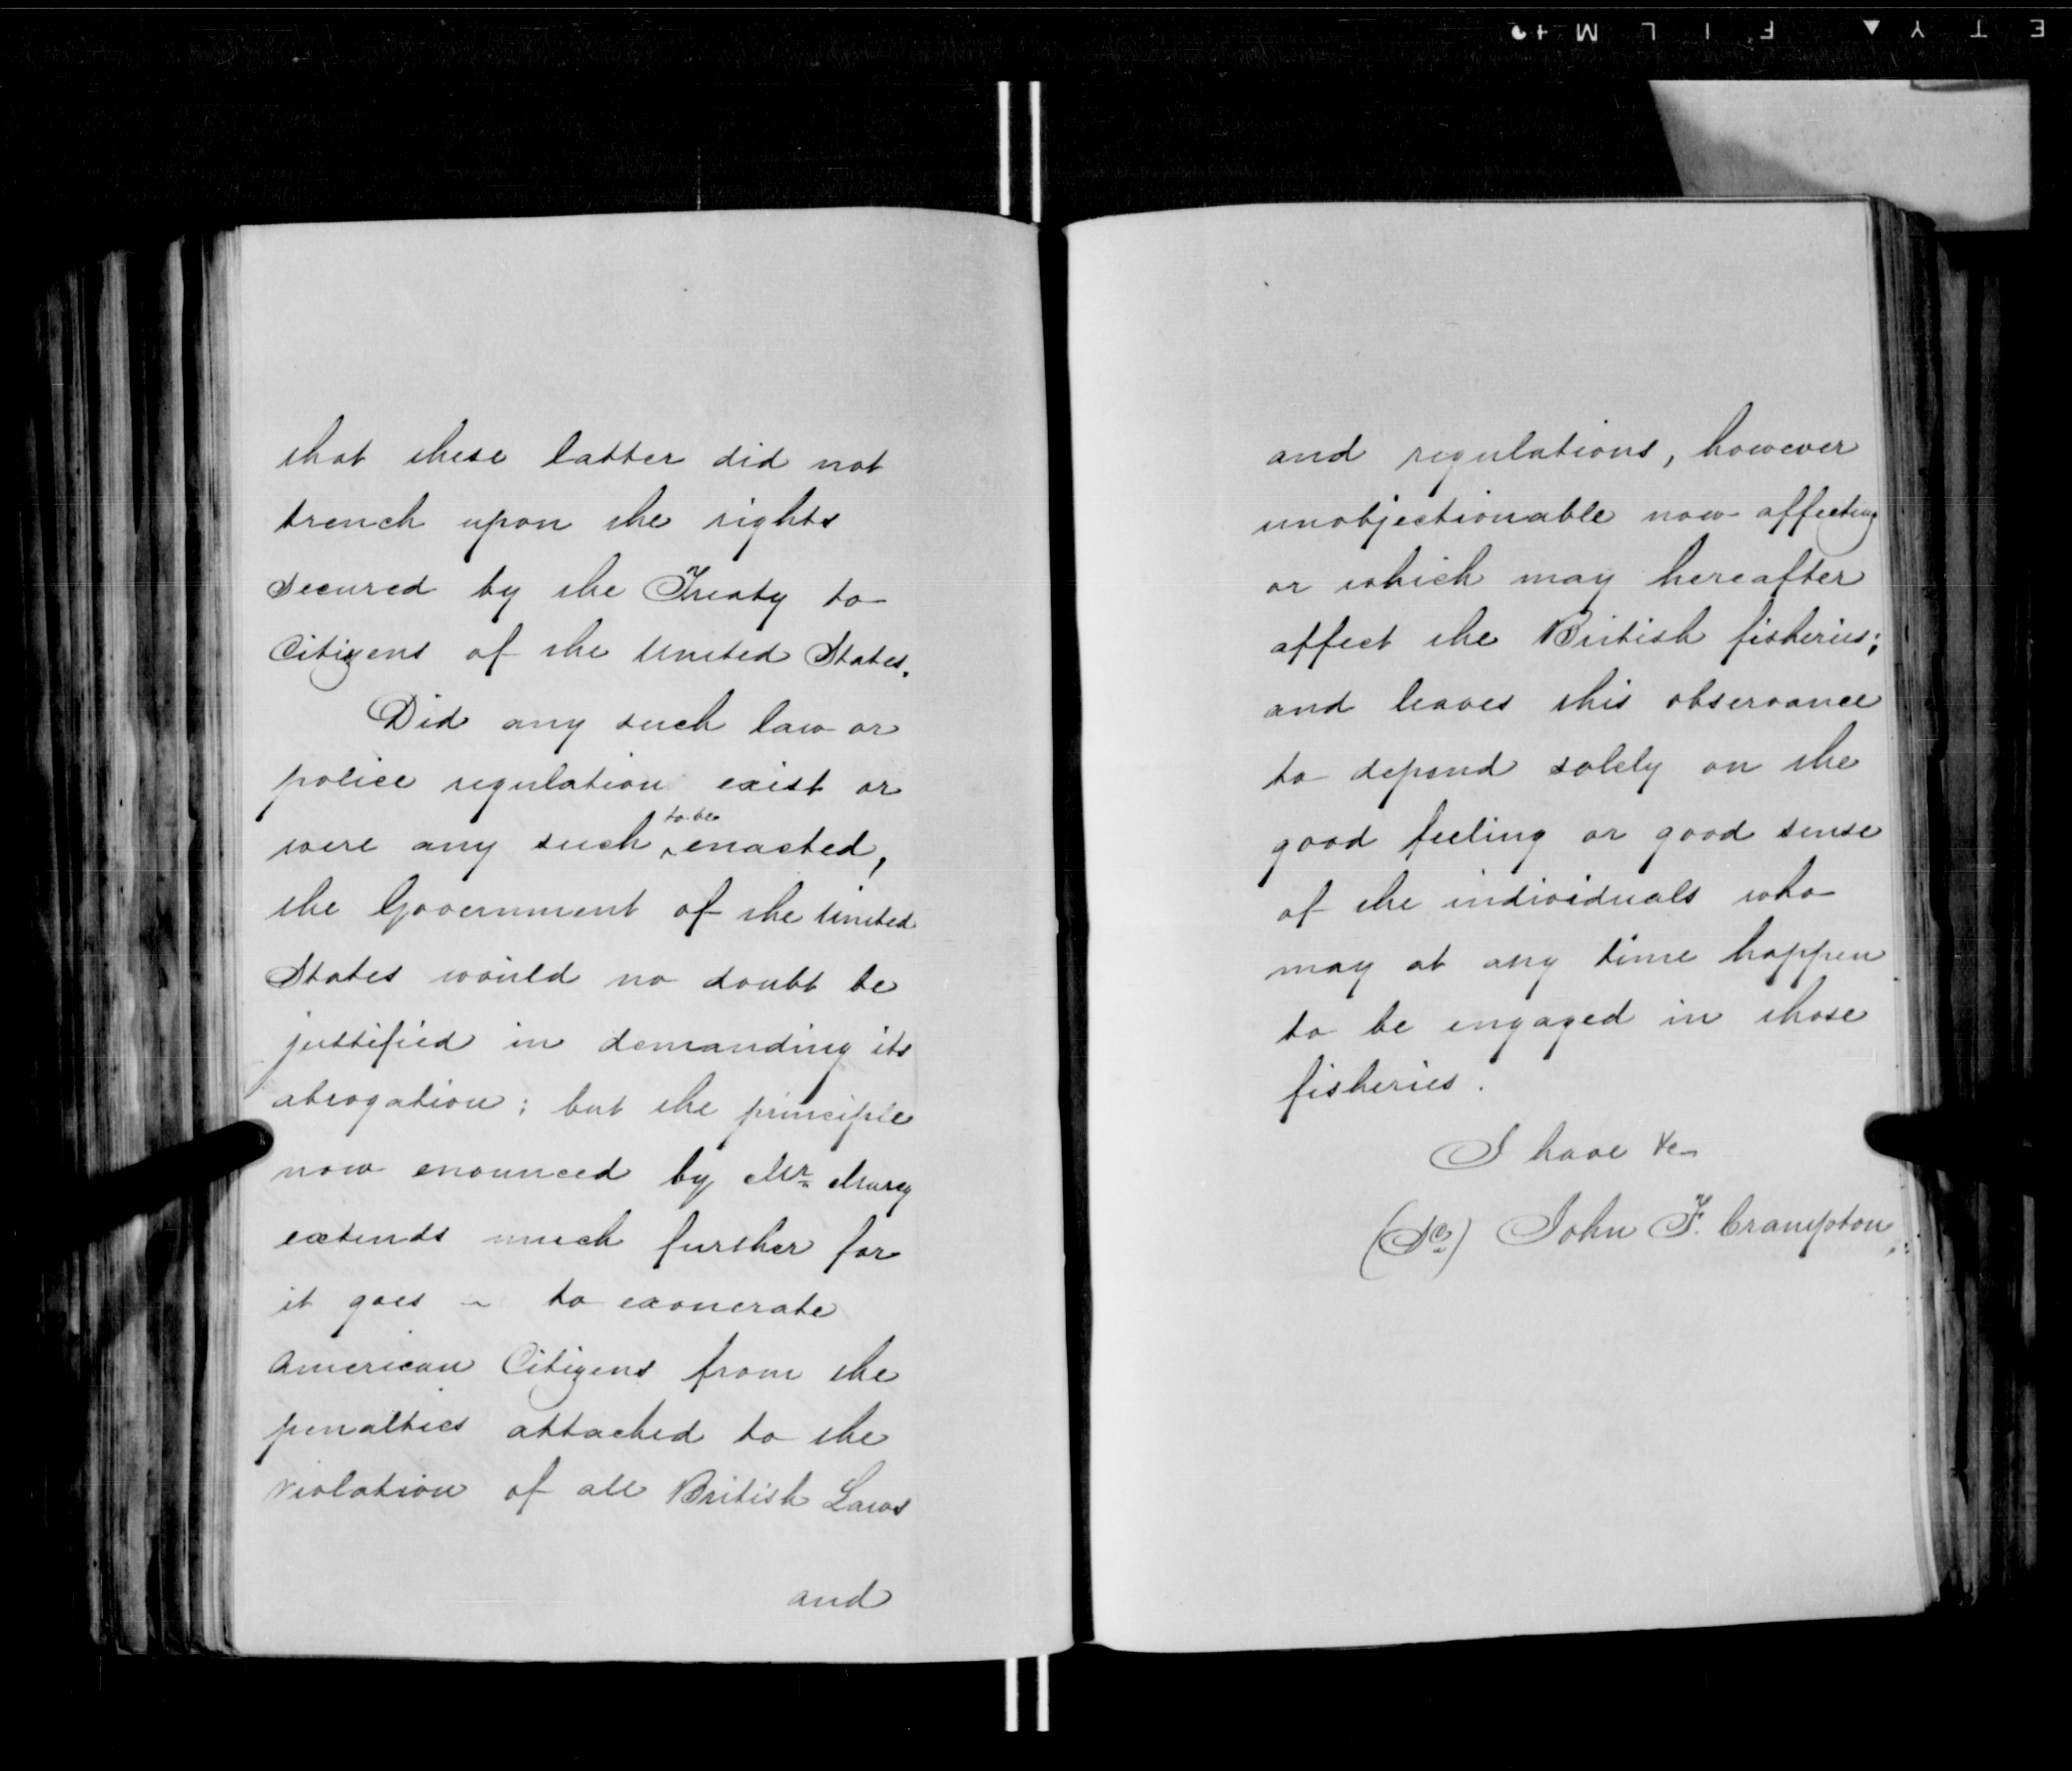 that these latter did not
trench upon the rights
secured by the Treaty to
Citizens of the United States.
Did any such law or
police regulation exist or
were any such to be enacted,
the Government of the United
States would no doubt be
justified in demanding its
abrogation; but the principle
now enounced by Mr. Marcy
extends much further for
it goes - to exonerate
American Citizens from the
penalties attached to the
violation of all British Laws
and
and regulations, however
unobjectionable now affecting
or which may hereafter
affect the British fisheries;
and leaves this observance
to depend solely on the
good feeling or good sense
of the individuals who
may at any time happen
to be engaged in those
fisheries.
I have &c
John F. Crampton